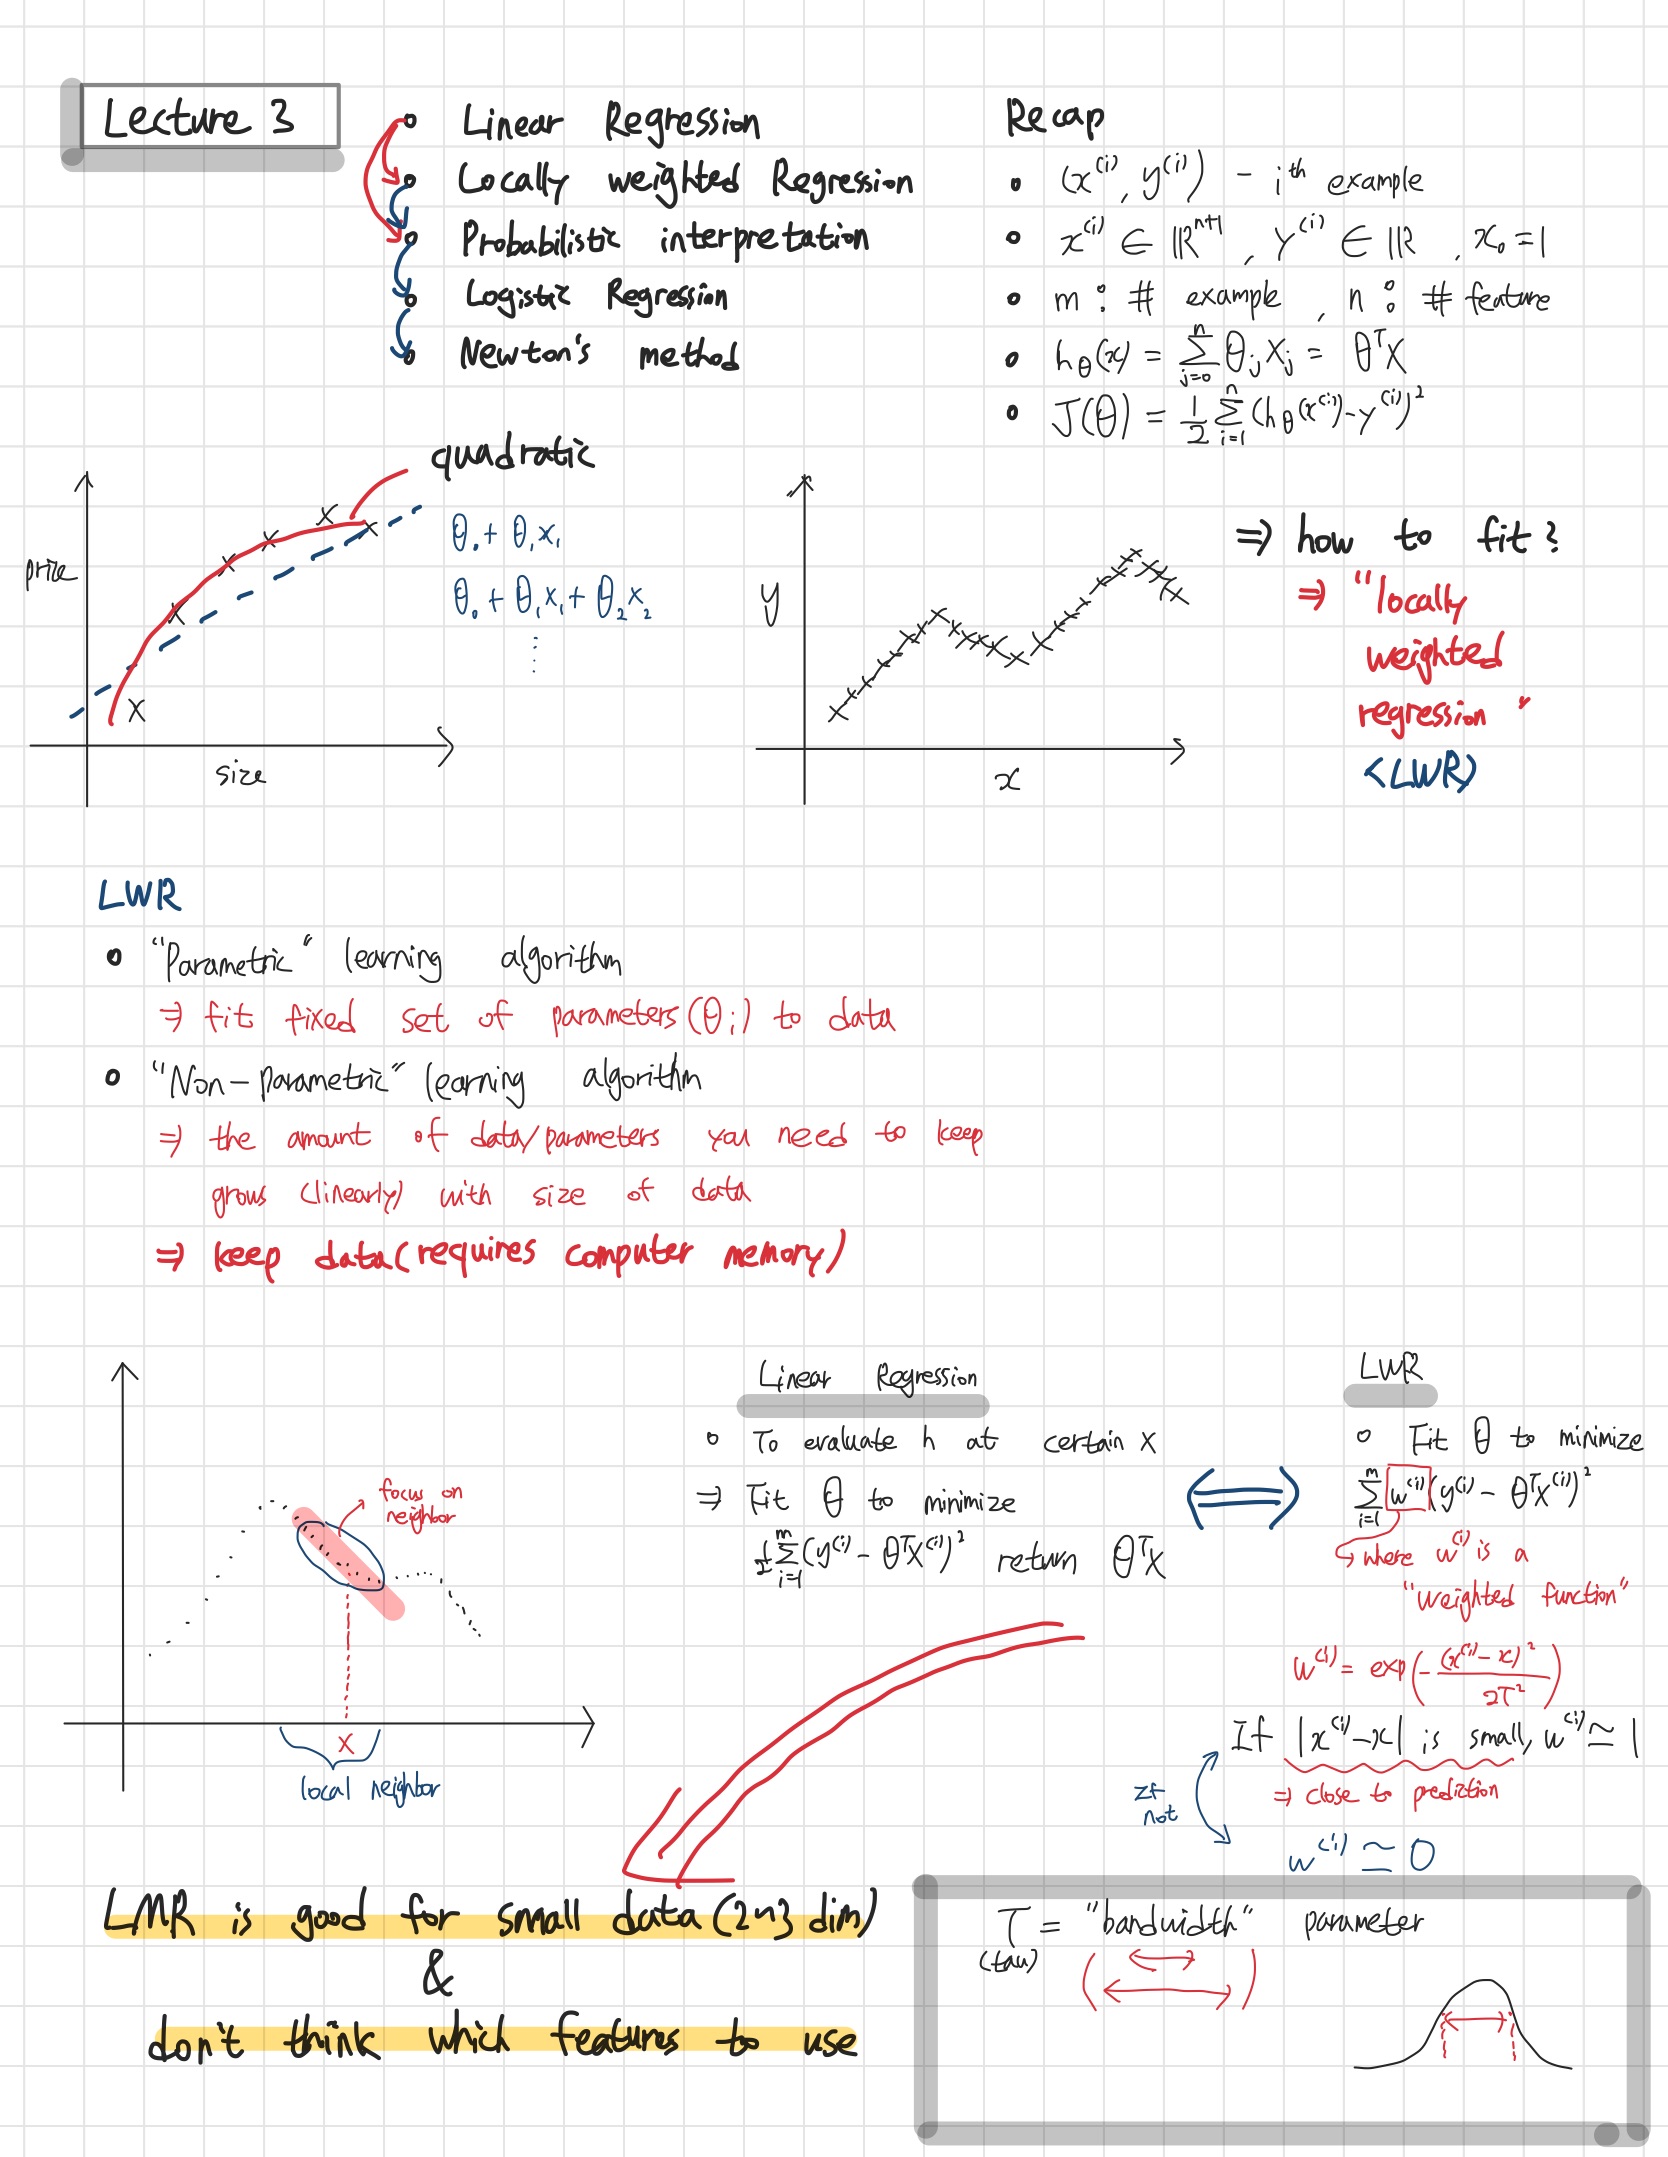 Lecture 3
Linear Regression
Locally weighted Regression
Probabilistic interpretation
Logistic Regression
Newton's method
Recap
(x^(i), y^(i)) - i^th example
x^(i) ∈ ℝ^n+1, Y^(i) ∈ ℝ, x₀ = 1
m : # example, n : # feature
h_θ(x) = Σ_{j=0}^n θ_j x_j = θ^T X
J(θ) = 1/2 Σ_{i=1}^n (h_θ(x^(i)) - y^(i))²
quadratic
θ₀ + θ₁x₁
θ₀ + θ₁x₁ + θ₂x₂
⋮
price
size
y
x
⇒ how to fit?
⇒ "locally
weighted
regression"
<LWR>
LWR
"Parametric" learning algorithm
⇒ fit fixed set of parameters (θ_i) to data
"Non-parametric" learning algorithm
⇒ the amount of data/parameters you need to keep
grows (linearly) with size of data
⇒ keep data (requires computer memory)
focus on
neighbor
x
local neighbor
Linear Regression
To evaluate h at certain x
⇒ Fit θ to minimize
1/2 Σ_{i=1}^m (y^(i) - θ^T x^(i))² return θ^T x
LWR
Fit θ to minimize
Σ_{i=1}^m w^(i) (y^(i) - θ^T x^(i))²
where w^(i) is a
"weighted function"
w^(i) = exp(-(x^(i) - x)² / 2τ²)
If |x^(i) - x| is small, w^(i) ≃ 1
⇒ close to prediction
If
not
w^(i) ≃ 0
LMR is good for small data (2~3 dim)
&
don't think which features to use
τ = "bandwidth" parameter
(tau)